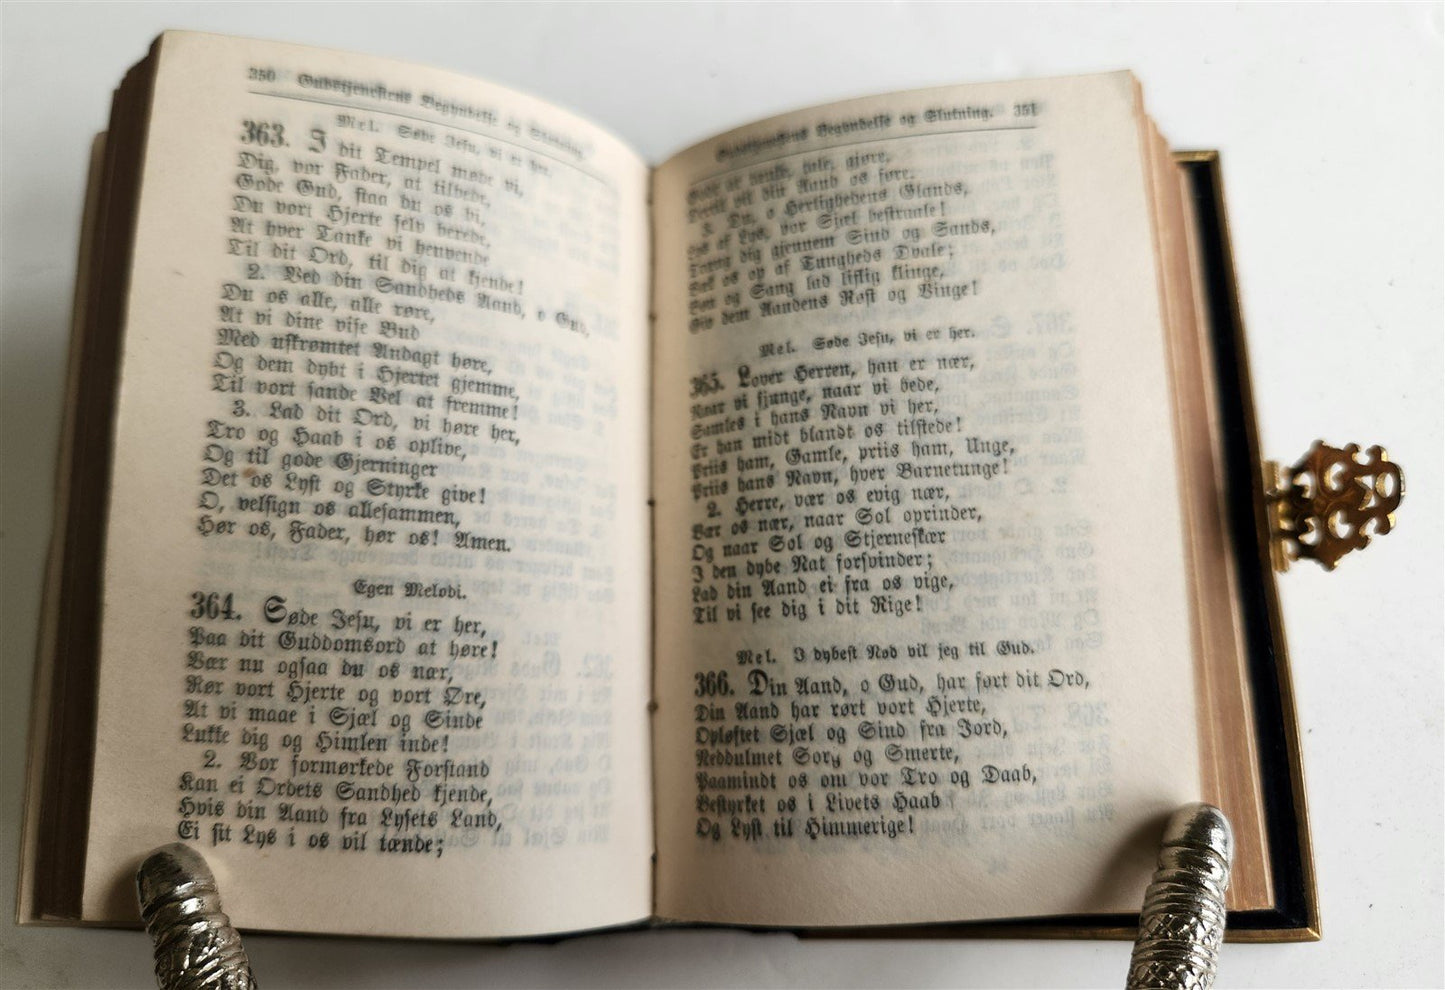 350 Gudstjenestens Begyndelse og Slutning.
Mel. Søde Jesu, vi er her.
363. I dit Tempel møde vi,
Dig, vor Fader, at tilbede,
Gode Gud, staa du os bi,
Du vori Hjerte selv berede,
At hver Tanke vi henvende
Til dit Ord, til dig at kjende!
2. Ved din Sandheds Aand, o Gud,
Du os alle, alle røre,
At vi dine vise Bud
Med uskrømtet Andagt høre,
Og dem dybt i Hjertet gjemme,
Til vort sande Vel at fremme!
3. Lad dit Ord, vi høre her,
Tro og Haab i os oplive,
Og til gode Gjerninger
Det os Lyst og Styrke give!
O, velsign os allesammen,
Hør os, Fader, hør os! Amen.
Egen Melodi.
364. Søde Jesu, vi er her,
Paa dit Guddomsord at høre!
Vær nu ogsaa du os nær,
Rør vort Hjerte og vort Øre,
At vi maae i Sjæl og Sinde
Lukke dig og Himlen inde!
2. Vor formørkede Forstand
Kan ei Ordets Sandhed kjende,
Hvis din Aand fra Lysets Land,
Ei sit Lys i os vil tænde;
Gudstjenestens Begyndelse og Slutning. 351
Godt at tænke, tale, gjøre,
Dertil vil din Aand os føre.
3. Du, o Herlighedens Glands,
Lys af Lys, vor Sjæl bestraale!
Træng dig gjennem Sind og Sands,
Væk os op af Tungheds Dvale;
Bøn og Sang lad liflig klinge,
Giv dem Aandens Røst og Vinge!
Mel. Søde Jesu, vi er her.
365. Lover Herren, han er nær,
Naar vi sjunge, naar vi bede,
Samles i hans Navn vi her,
Er han midt blandt os tilstede!
Priis ham, Gamle, priis ham, Unge,
Priis hans Navn, hver Barnetunge!
2. Herre, vær os evig nær,
Vær os nær, naar Sol oprinder,
Og naar Sol og Stjerneskær
I den dybe Nat forsvinder;
Lad din Aand ei fra os vige,
Til vi see dig i dit Rige!
Mel. I dybest Nød vil jeg til Gud.
366. Din Aand, o Gud, har ført dit Ord,
Din Aand har rørt vort Hjerte,
Opløftet Sjæl og Sind fra Jord,
Neddulmet Sorg og Smerte,
Paamindt os om vor Tro og Daab,
Bestyrket os i Livets Haab
Og Lyst til Himmerige!